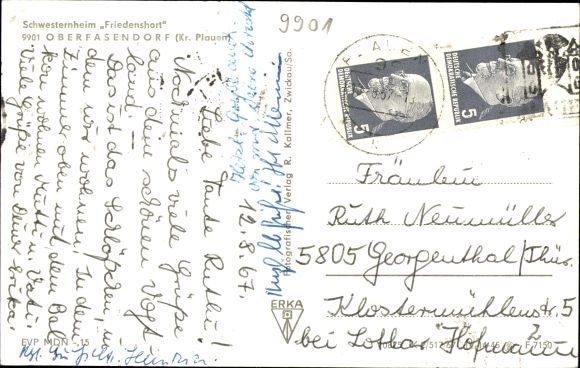 Schwesternheim „Friedenshort"
9901 OBERFASENDORF (Kr. Plauen)
9901
12.8.67.
Liebe Tante Ruthi!
Nochmals viele Grüße
aus dem schönen Vogt-
land. –
Das ist das Schlößchen, in
dem wir wohnen! In dem
Zimmer oben mit dem Bal-
kon wohnen Mutti u. Vati.
Viele Grüße von
Herzl. Grüße
DEUTSCHE DEMOKRATISCHE REPUBLIK
5
DEUTSCHE DEMOKRATISCHE REPUBLIK
5
Fotografischer Verlag R. Kallmer, Zwickau/Sa.
ERKA
EVP MDN -,15
Fräulein
Ruth Neumüller
5805 Georgenthal/Thür.
Klostermühlenstr. 5
bei Lothar Hofmann
F 7150